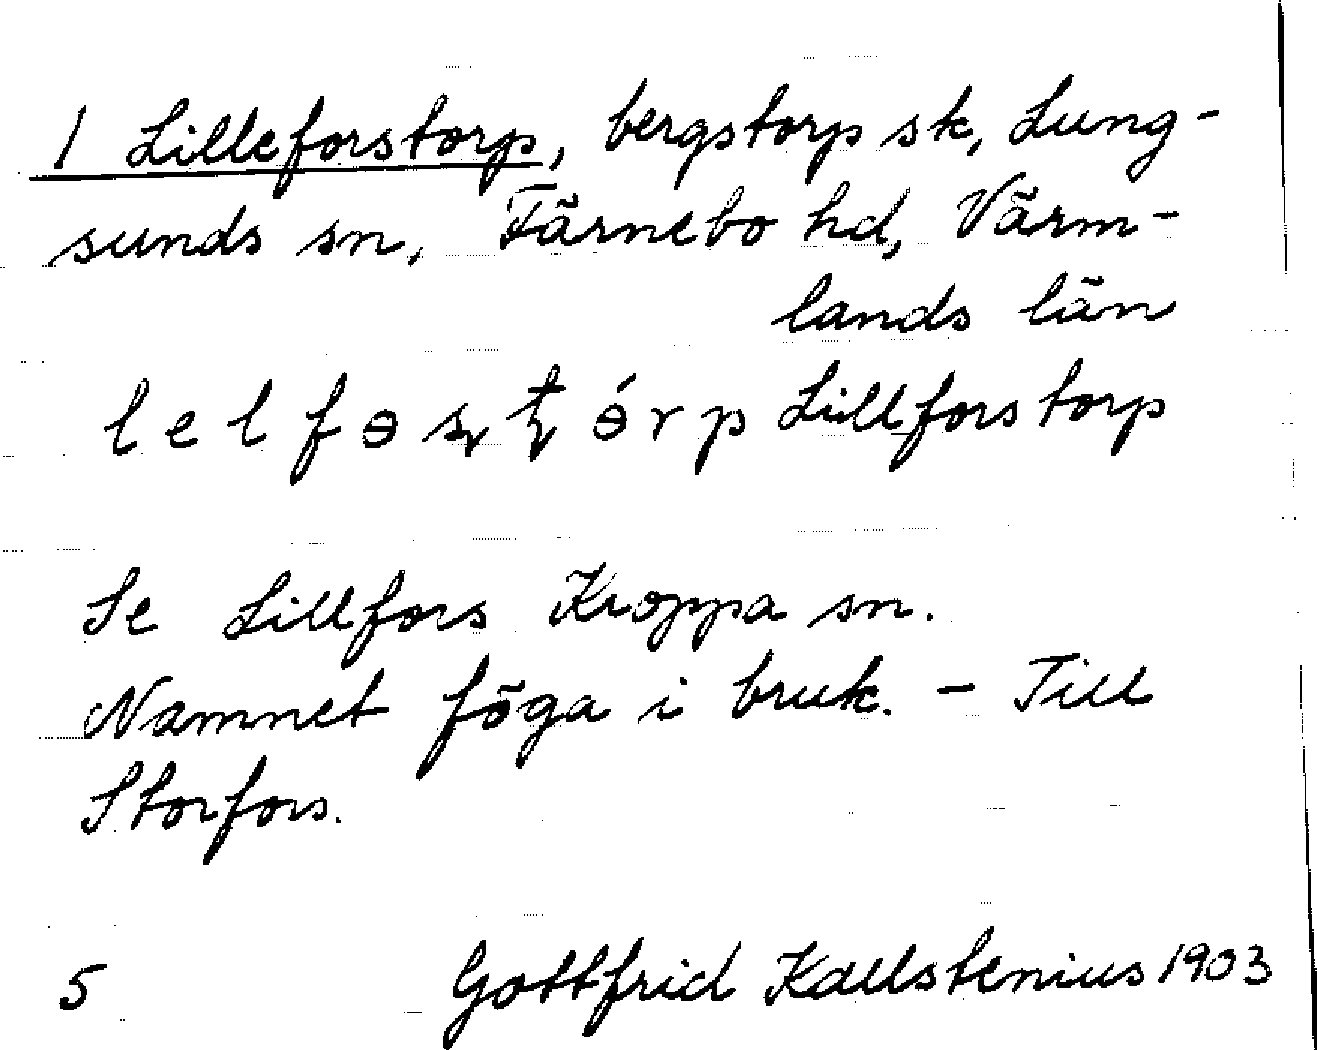 1 Lilleforstorp, bergstorp sk, Lung-
sunds sn, Färnebo hd, Värm-
lands län
l e l f ɵ ʂ ʈ ɵ́ r p Lillforstorp
Se Lillfors Kroppa sn.
Namnet föga i bruk. – Till
Storfors.
5 Gottfrid Kallstenius 1903